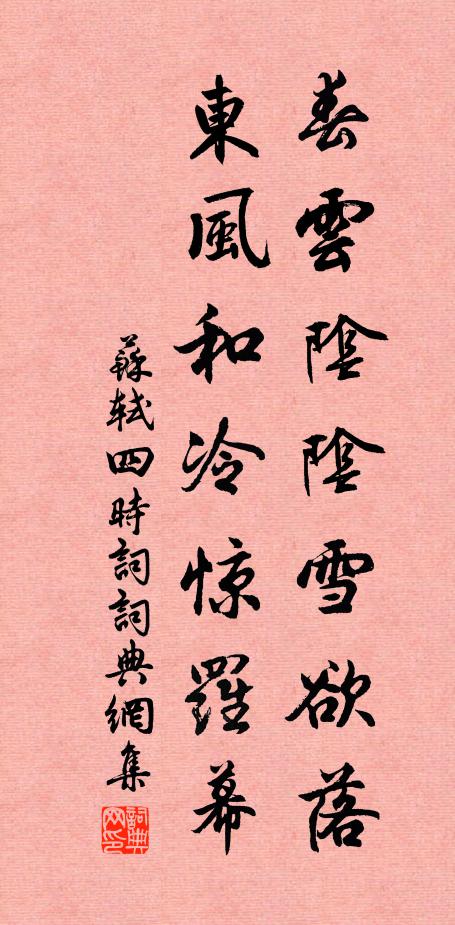 春雲陰陰雪欲落
東風和冷惊羅幕
蘇軾四時詞詞典網集
詞典网印